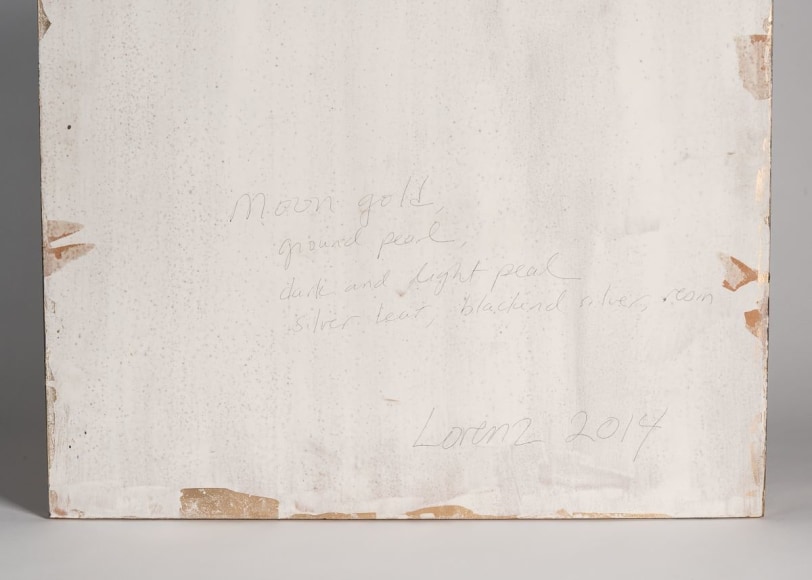 Moon gold,
ground pearl,
dark and light pearl
silver leaf, blackend silver, resin
Lorenz 2014